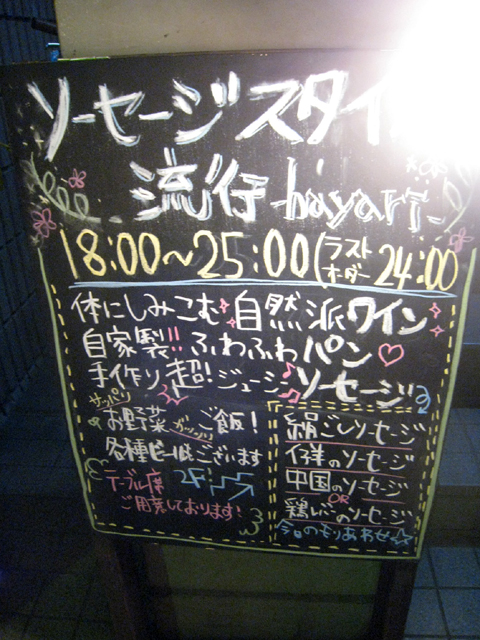 ソーセージ スタイ
流行 -hayari-
18:00~25:00(ラストオーダー24:00
体にしみこむ 自然派ワイン
自家製!! ふわふわパン♡
手作り 超!ジューシーソーセージ
サッパリ
お野菜 ガッツリ ご飯!
各種ビールもございます
テーブル席 2F
ご用意しております!
絹ごしソーセージ
仔羊のソーセージ
中国のソーセージ
OR
鶏レバーのソーセージ
今日のもりあわせ☆